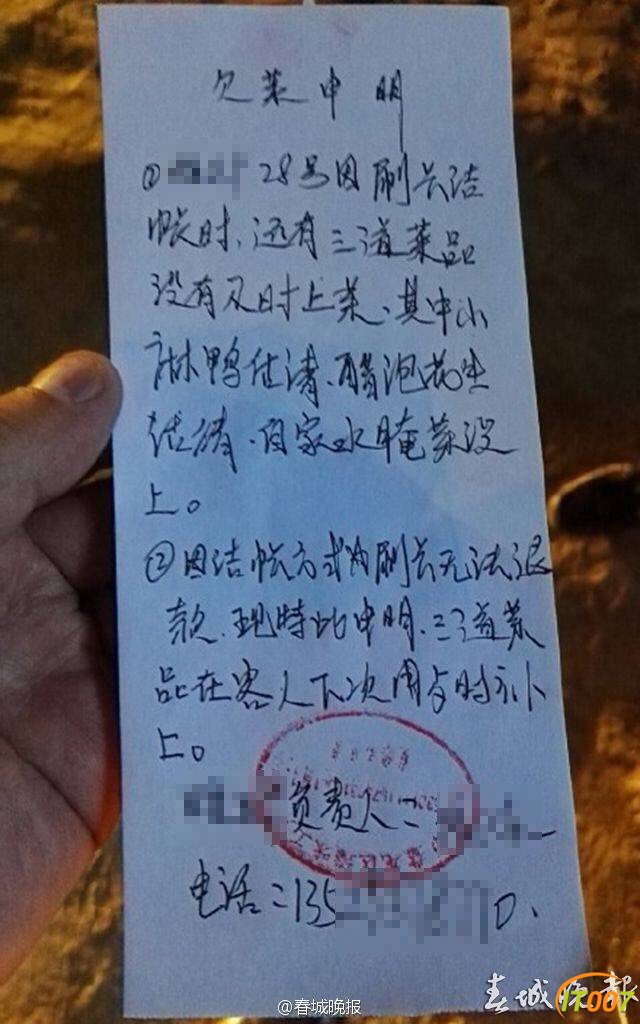 欠菜申明
① 28号因刷卡结
帐时，还有三道菜品
没有及时上菜、其中小
麻鸭估清、醋泡花生
估清、自家水腌菜没
上。
②因结帐方式为刷卡无法退
款、现特此申明、三道菜
品在客人下次用与时补
上。
负责人：
电话：135 0、
@春城晚报
春城晚报
IT007